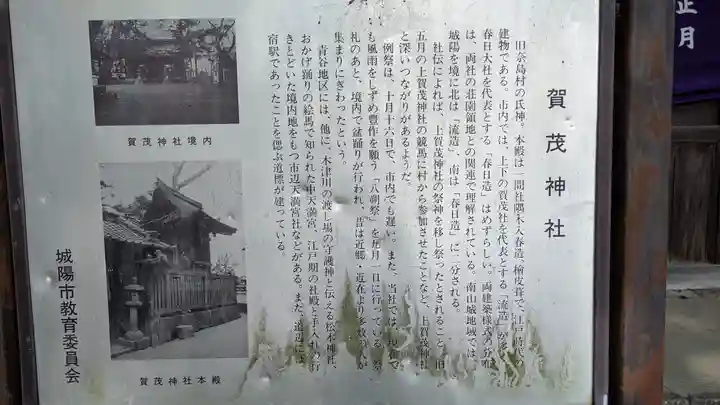 正月
賀茂神社
旧奈島村の氏神。本殿は一間社隅木入春造、檜皮葺で、江戸時代の
建物である。市内では、上下の賀茂社を代表とする「流造」が多く
春日大社を代表とする「春日造」はめずらしい。両建築様式の分布
は、両社の荘園領地との関連で理解されている。南山城地域では、
城陽を境に北は「流造」、南は「春日造」に二分される。
社伝によれば、上賀茂神社の祭神を移し祭ったとされること、旧
五月の上賀茂神社の競馬に村から参加させたことなど、上賀茂神社
と深いつながりがあるようだ。
例祭は、十月十六日で、市内でも遅い。また、当社では、現在で
も風雨をしずめ豊作を願う「八朔祭」を九月一日に行っている。祭
礼のあと、境内で盆踊りが行われ、昔は近郷・近在より多数の人が
集まりにぎわったという。
青谷地区には、他に、木津川の渡し場の守護神と伝える松本神社、
おかげ踊りの絵馬で知られた中天満宮、江戸期の社殿と手入れの行
きとどいた境内地をもつ市辺天満宮社などがある。また、道辺には
宿駅であったことを偲ぶ道標が建っている。
賀茂神社境内
賀茂神社本殿
城陽市教育委員会